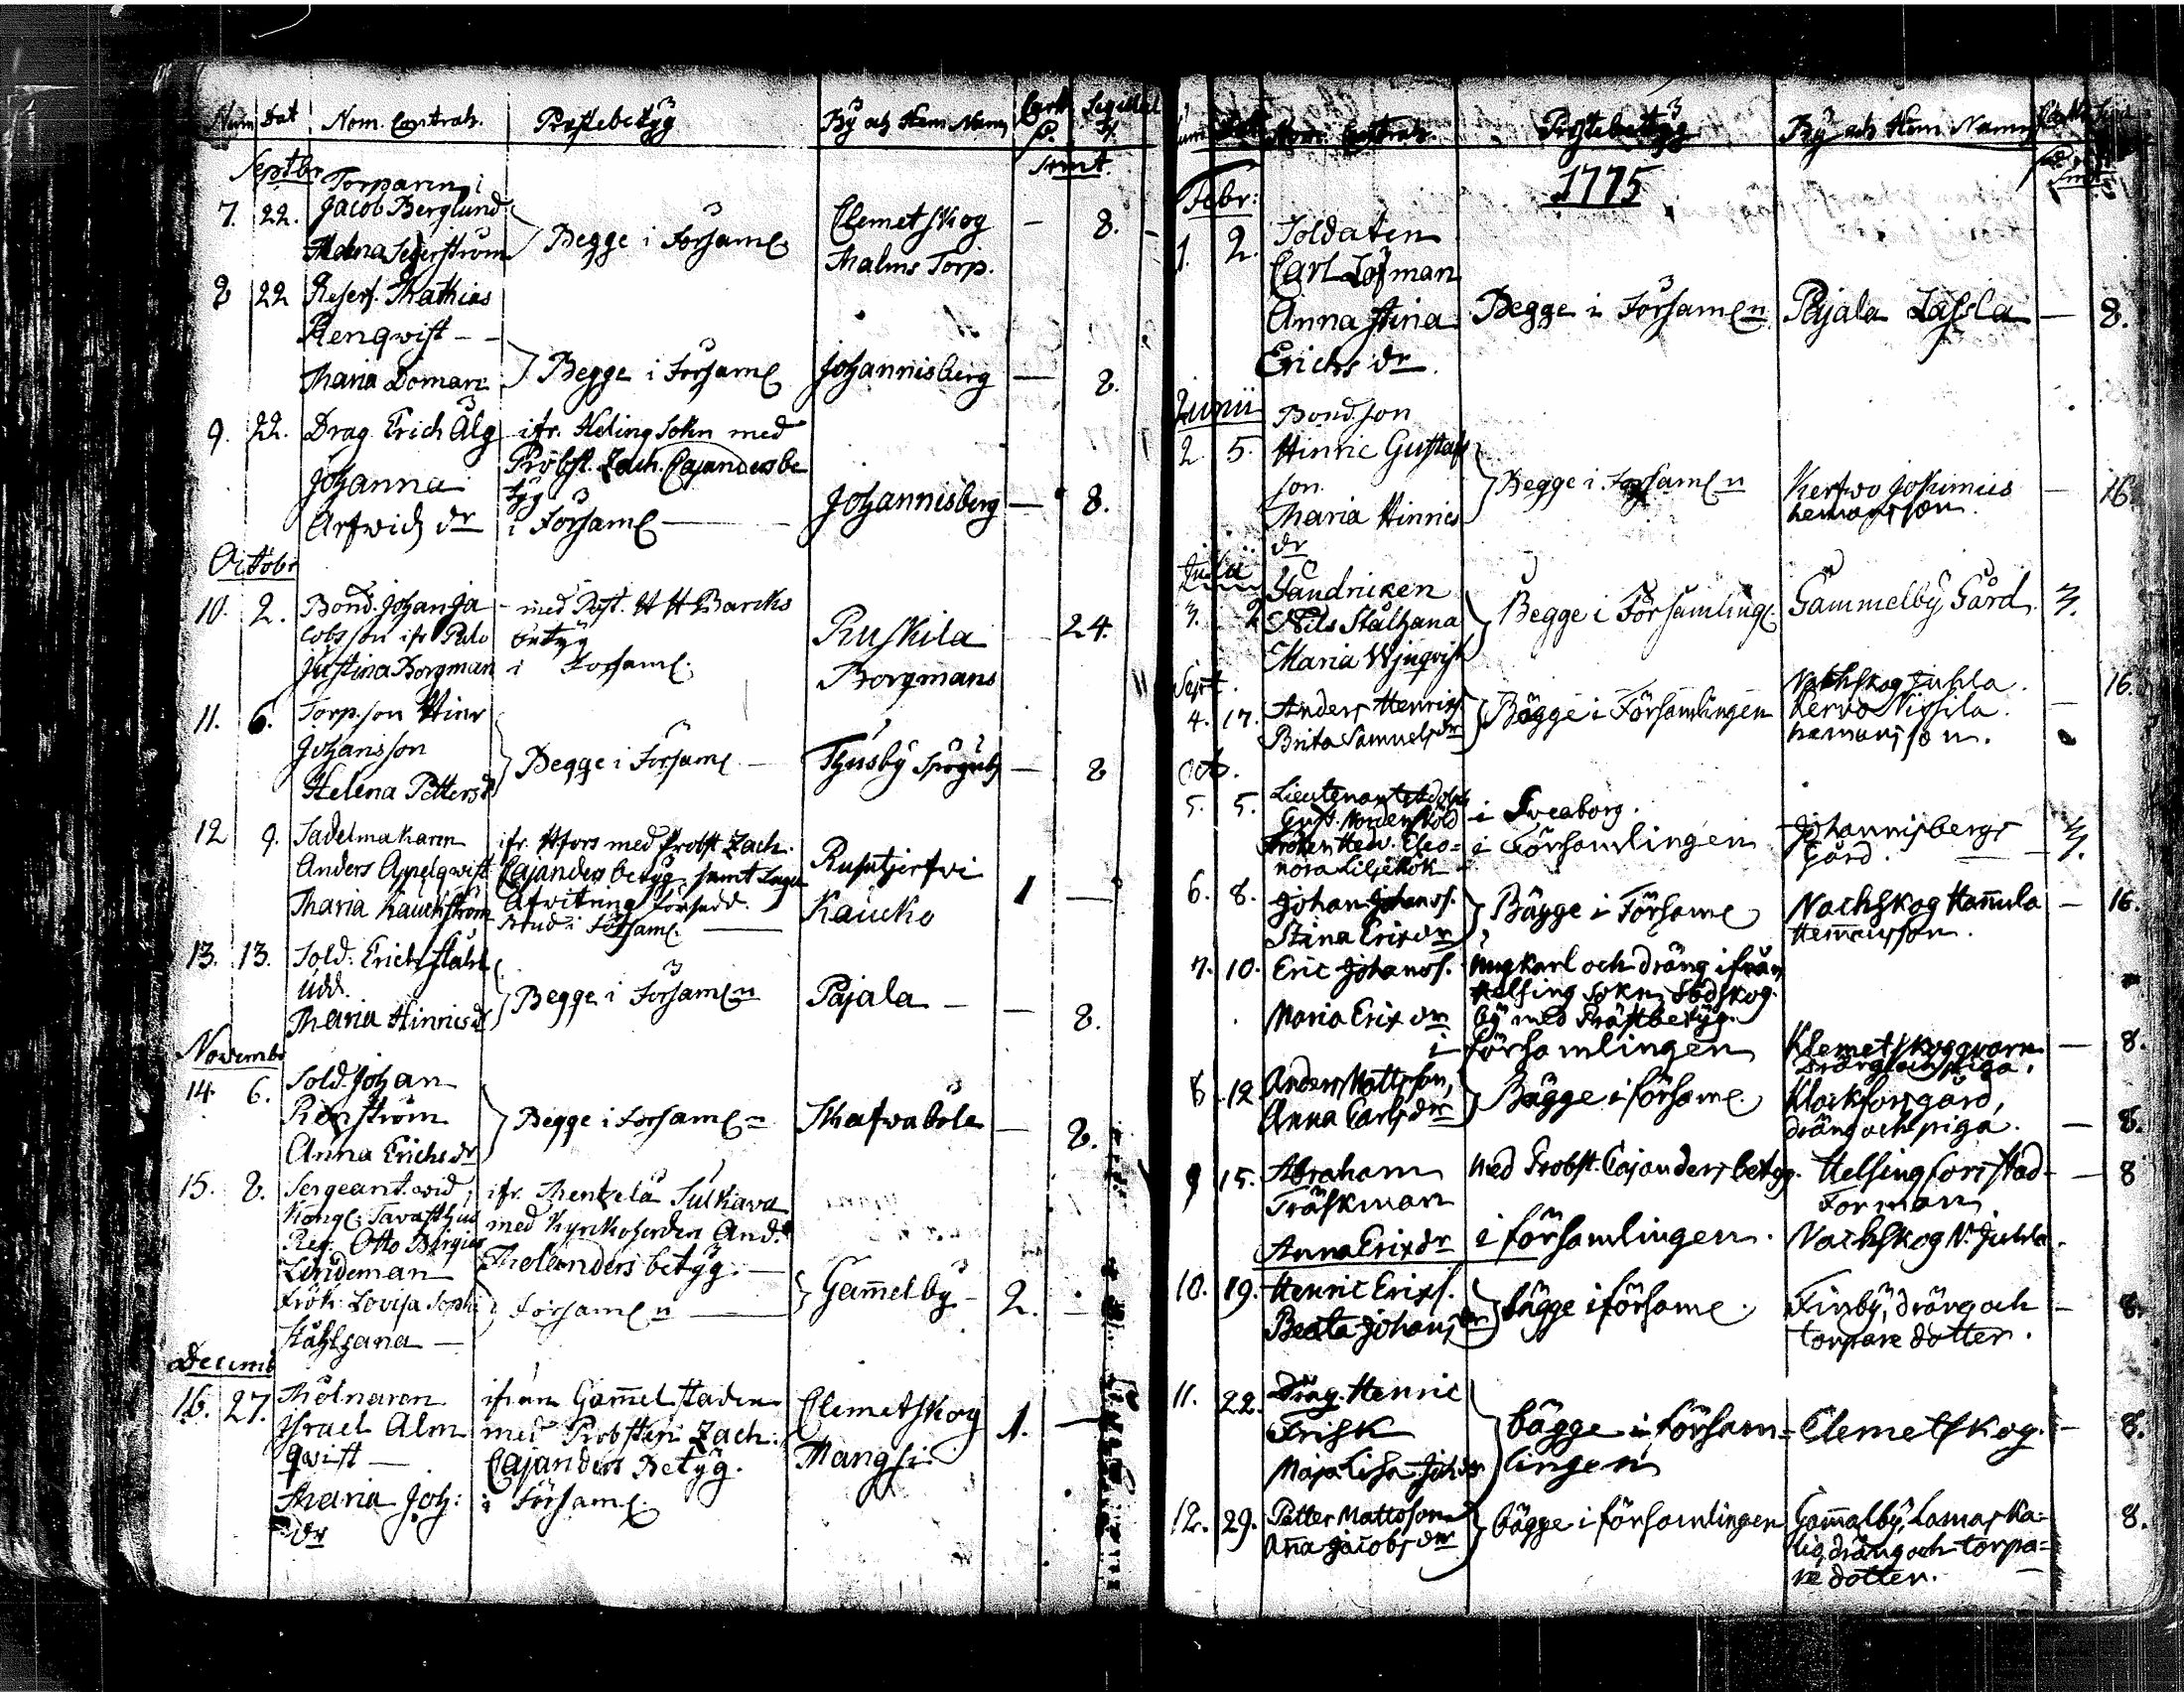 Num Dat Nom. Contrah. Prestebetyg By och Hem Namn
Septbr
Torparen
7. 22. Jacob Berglund
Begge i Församl
Clemetskog
Malms Torp. — 8.
8 22 Reserf. Mathias
Renqwist —
Maria Doman
Begge i Församl Johannisberg — 8.
9. 22. Drag. Erich Alg
ifr. Heling Sokn med
Probst. Zach. Cajanders be
tyg
Johanna
Arfwids dr
i Församl — Johannisberg — 8.
Octobr
10. 2. Bond. Johan Ja
cobsson ifr
Justina Borgman
med Past. H H Barcks
betyg
i Församl.
Ruskila
Borgmans 24.
11. 6. Torp.son Hinr
Johansson
Helena Petters dr
Begge i Församl — Tjusby — 8
12 9. Sadelmakaren
Anders Appelqwist
Maria Kauckström
ifr. Hfors med Probst Zach.
Cajanders betyg samt
Afwitring försedd.
Brud i Församl. —
Kaucko 1 —
13. 13. Sold. Erich Stål
udd.
Maria Hinrics dr
Begge i Församl n Pajala — — 8.
Novembr
14. 6. Sold. Johan
Renström
Anna Erichs dr
Begge i Församl n Skafwaböle — 8.
15. 8. Sergeant. wid
Kongl. Tavasthus
Reg. Otto
Lindeman
Frök. Lovisa Sophi
Stählhana —
ifr. Mentzelä Sulkawa
med Kyrkoherden And.
Molanders betyg. —
i Församl n —
Gammelby — 2. —
Decemb
16. 27. Mölnaren
Israel Alm
qwist —
Maria Joh:
dr
ifrån Gammel staden
med Probsten Zach:
Cajanders Betyg.
i Församl.
Clemetskog
Mangsi 1. —
Nom. Contrah. Prestebetyg By och Hem Namn
1775
Febr:
1. 2. Soldaten
Carl Löfman
Anna Stina
Erichs dr.
Begge i Församl n Pajala Lassla — 8.
Junii
2 5. Bond.son
Hinric Gustafs
son
Maria Hinrics
dr
Begge i Församl n Kerfwo Jokimies
hemansson. — 16
Julii
3. 2 Fändricken
Nils Stålhana
Maria
Begge i Församlingl. Gammelby Gård. 3.
Sept.
4. 17. Anders Henrics.
Brita Samuelsdr
Bägge i Församlingen
Nackskog Juhla.
Kervo Nissila.
hemansson. — 16.
Oct.
5. 5. Lieutenant Adolph
Gust. Nordenskiöld
Fröken Hedv. Eleo=
nora Liljehök
i Sveaborg.
i Församlingen
Johannisbergs
Gård.
6. 8. Johan Johanss.
Stina Erixdr
Bägge i Församl
Nackskog Hannula
Hemansson. — 16.
7. 10. Eric Johanss.
Maria Erixdr
Ungkarl och dräng ifrån
Helsing Sokn, Södskog.
by med Prästbetyg.
i församlingen
Klemetskog
dräng och piga. — 8.
8 12 Anders Mattsson,
Anna Carlsdr
Bägge i församl.
Klockfors gård,
dräng och piga. — 8.
9 15. Abraham
Träskman
Anna Erixdr
med Probst. Cajanders betyg.
i församlingen.
Helsingfors Stad
Forman
Nackskog N. Juhla. — 8
10. 19. Henric Erixs.
Beata Johansdr
bägge i församl.
Finby, dräng och
torpare dotter. — 8.
11. 22. Drag. Henric
Frisk
Maja Lisa Joh dr
bägge i försam=
lingen
Clemetskog. — 8.
12. 29. Petter Mattsson
Anna Jacobsdr
bägge i församlingen
dräng och torpa=
re dotter. — 8.